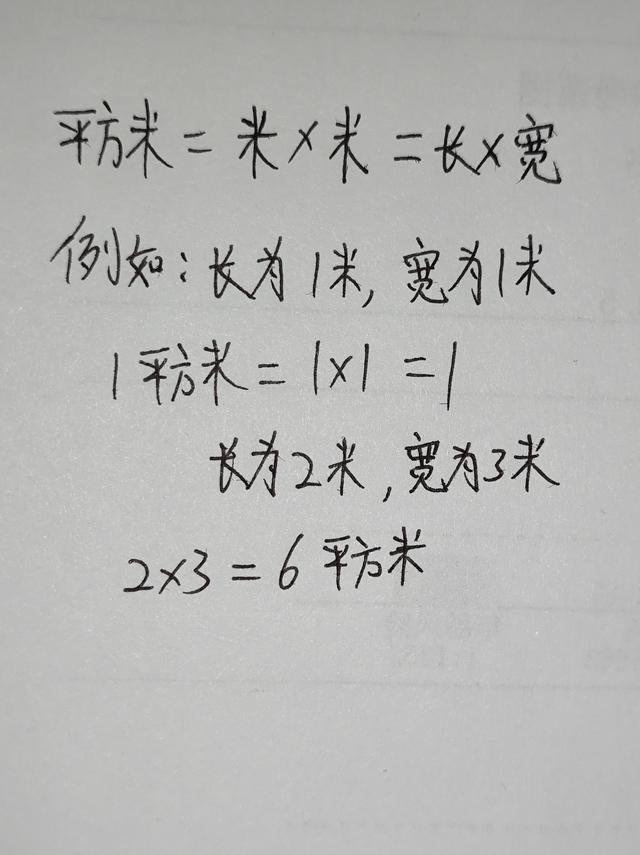 平方米 = 米 × 米 = 长 × 宽
例如: 长为1米, 宽为1米
1平方米 = 1×1 = 1
长为2米, 宽为3米
2×3 = 6平方米